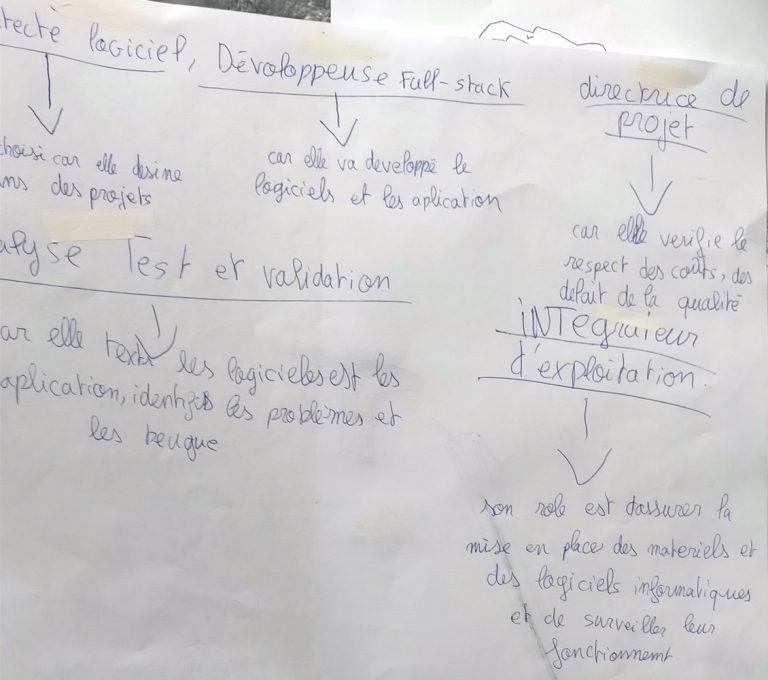 tecte logiciel,
choisi car elle desine
ns des projets
Dévoloppeuse Full-stack
car elle va developpé le
logiciels et les aplication
directrice de
projet
car elle verifie le
respect des coûts, des
defait de la qualité
alyse Test et validation
ar elle texte les logicieles est les
aplication, identifis les problèmes et
les beugue
iNTEgraieur
d'exploitation.
son role est d'assurer la
mise en place des materiels et
des logiciels informatiques
et de surveiller leur
fonctionnemt